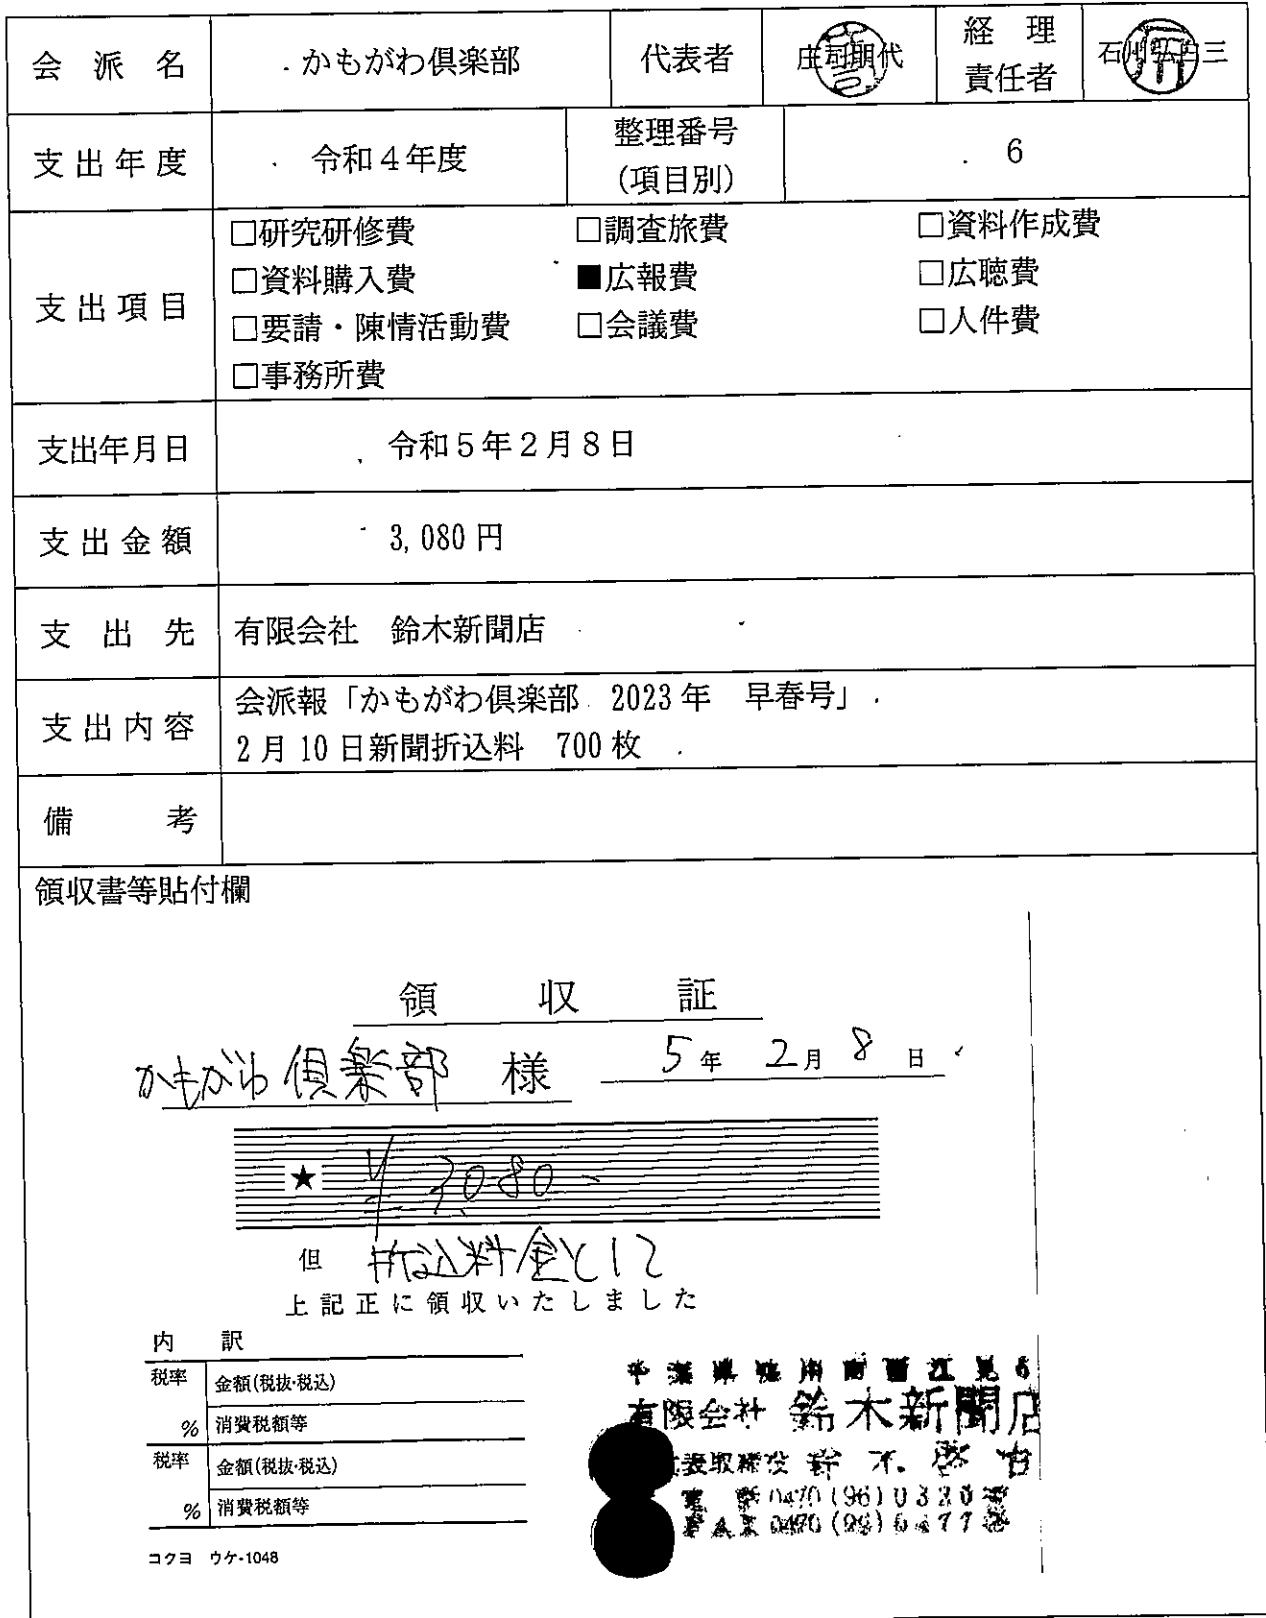 会派名 かもがわ倶楽部 代表者 庄司朋代 経理責任者 石川 三
支出年度 令和4年度 整理番号(項目別) 6
支出項目
□研究研修費 □調査旅費 □資料作成費
□資料購入費 ■広報費 □広聴費
□要請・陳情活動費 □会議費 □人件費
□事務所費
支出年月日 令和5年2月8日
支出金額 3,080円
支出先 有限会社 鈴木新聞店
支出内容
会派報「かもがわ倶楽部 2023年 早春号」
2月10日新聞折込料 700枚
備考
領収書等貼付欄
領収証
かもがわ倶楽部 様 5年 2月 8日
★ ¥3,080-
但 折込料金として
上記正に領収いたしました
内訳
税率 金額(税抜・税込)
% 消費税額等
税率 金額(税抜・税込)
% 消費税額等
コクヨ ウケ-1048
有限会社 鈴木新聞店
表取締役 鈴木